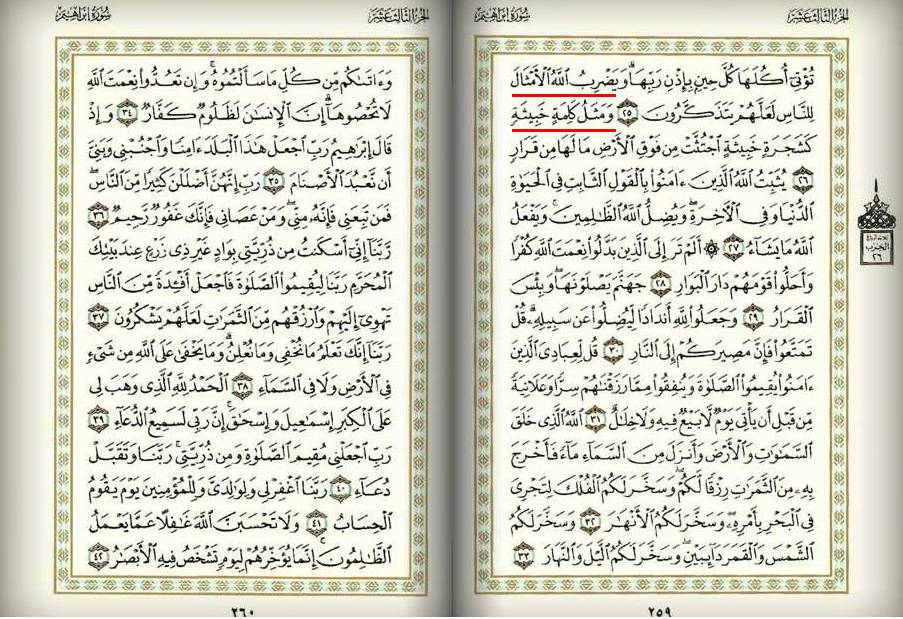 الجزء الثالث عشر
سورة إبراهيم
تُؤْتِىٓ أُكُلَهَا كُلَّ حِينٍۭ بِإِذْنِ رَبِّهَا ۗ وَيَضْرِبُ ٱللَّهُ ٱلْأَمْثَالَ
لِلنَّاسِ لَعَلَّهُمْ يَتَذَكَّرُونَ ٢٥ وَمَثَلُ كَلِمَةٍ خَبِيثَةٍ
كَشَجَرَةٍ خَبِيثَةٍ ٱجْتُثَّتْ مِن فَوْقِ ٱلْأَرْضِ مَا لَهَا مِن قَرَارٍ
٢٦ يُثَبِّتُ ٱللَّهُ ٱلَّذِينَ ءَامَنُوا۟ بِٱلْقَوْلِ ٱلثَّابِتِ فِى ٱلْحَيَوٰةِ
ٱلدُّنْيَا وَفِى ٱلْـَٔاخِرَةِ ۖ وَيُضِلُّ ٱللَّهُ ٱلظَّـٰلِمِينَ ۚ وَيَفْعَلُ
ٱللَّهُ مَا يَشَآءُ ٢٧ ۞ أَلَمْ تَرَ إِلَى ٱلَّذِينَ بَدَّلُوا۟ نِعْمَتَ ٱللَّهِ كُفْرًا
وَأَحَلُّوا۟ قَوْمَهُمْ دَارَ ٱلْبَوَارِ ٢٨ جَهَنَّمَ يَصْلَوْنَهَا ۖ وَبِئْسَ
ٱلْقَرَارُ ٢٩ وَجَعَلُوا۟ لِلَّهِ أَندَادًا لِّيُضِلُّوا۟ عَن سَبِيلِهِۦ ۗ قُلْ
تَمَتَّعُوا۟ فَإِنَّ مَصِيرَكُمْ إِلَى ٱلنَّارِ ٣٠ قُل لِّعِبَادِىَ ٱلَّذِينَ
ءَامَنُوا۟ يُقِيمُوا۟ ٱلصَّلَوٰةَ وَيُنفِقُوا۟ مِمَّا رَزَقْنَـٰهُمْ سِرًّا وَعَلَانِيَةً
مِّن قَبْلِ أَن يَأْتِىَ يَوْمٌ لَّا بَيْعٌ فِيهِ وَلَا خِلَـٰلٌ ٣١ ٱللَّهُ ٱلَّذِى خَلَقَ
ٱلسَّمَـٰوَٰتِ وَٱلْأَرْضَ وَأَنزَلَ مِنَ ٱلسَّمَآءِ مَآءً فَأَخْرَجَ
بِهِۦ مِنَ ٱلثَّمَرَٰتِ رِزْقًا لَّكُمْ ۖ وَسَخَّرَ لَكُمُ ٱلْفُلْكَ لِتَجْرِىَ
فِى ٱلْبَحْرِ بِأَمْرِهِۦ ۖ وَسَخَّرَ لَكُمُ ٱلْأَنْهَـٰرَ ٣٢ وَسَخَّرَ لَكُمُ
ٱلشَّمْسَ وَٱلْقَمَرَ دَآئِبَيْنِ ۖ وَسَخَّرَ لَكُمُ ٱلَّيْلَ وَٱلنَّهَارَ ٣٣
الحزب
٢٦
٢٥٩
سورة إبراهيم
الجزء الثالث عشر
وَءَاتَىٰكُم مِّن كُلِّ مَا سَأَلْتُمُوهُ ۚ وَإِن تَعُدُّوا۟ نِعْمَتَ ٱللَّهِ
لَا تُحْصُوهَآ ۗ إِنَّ ٱلْإِنسَـٰنَ لَظَلُومٌ كَفَّارٌ ٣٤ وَإِذْ
قَالَ إِبْرَٰهِيمُ رَبِّ ٱجْعَلْ هَـٰذَا ٱلْبَلَدَ ءَامِنًا وَٱجْنُبْنِى وَبَنِىَّ
أَن نَّعْبُدَ ٱلْأَصْنَامَ ٣٥ رَبِّ إِنَّهُنَّ أَضْلَلْنَ كَثِيرًا مِّنَ ٱلنَّاسِ ۖ
فَمَن تَبِعَنِى فَإِنَّهُۥ مِنِّى ۖ وَمَنْ عَصَانِى فَإِنَّكَ غَفُورٌ رَّحِيمٌ ٣٦
رَّبَّنَآ إِنِّىٓ أَسْكَنتُ مِن ذُرِّيَّتِى بِوَادٍ غَيْرِ ذِى زَرْعٍ عِندَ بَيْتِكَ
ٱلْمُحَرَّمِ رَبَّنَا لِيُقِيمُوا۟ ٱلصَّلَوٰةَ فَٱجْعَلْ أَفْـِٔدَةً مِّنَ ٱلنَّاسِ
تَهْوِىٓ إِلَيْهِمْ وَٱرْزُقْهُم مِّنَ ٱلثَّمَرَٰتِ لَعَلَّهُمْ يَشْكُرُونَ ٣٧
رَبَّنَآ إِنَّكَ تَعْلَمُ مَا نُخْفِى وَمَا نُعْلِنُ ۗ وَمَا يَخْفَىٰ عَلَى ٱللَّهِ مِن شَىْءٍ
فِى ٱلْأَرْضِ وَلَا فِى ٱلسَّمَآءِ ٣٨ ٱلْحَمْدُ لِلَّهِ ٱلَّذِى وَهَبَ لِى
عَلَى ٱلْكِبَرِ إِسْمَـٰعِيلَ وَإِسْحَـٰقَ ۚ إِنَّ رَبِّى لَسَمِيعُ ٱلدُّعَآءِ ٣٩
رَبِّ ٱجْعَلْنِى مُقِيمَ ٱلصَّلَوٰةِ وَمِن ذُرِّيَّتِى ۚ رَبَّنَا وَتَقَبَّلْ
دُعَآءِ ٤٠ رَبَّنَا ٱغْفِرْ لِى وَلِوَٰلِدَىَّ وَلِلْمُؤْمِنِينَ يَوْمَ يَقُومُ
ٱلْحِسَابُ ٤١ وَلَا تَحْسَبَنَّ ٱللَّهَ غَـٰفِلًا عَمَّا يَعْمَلُ
ٱلظَّـٰلِمُونَ ۚ إِنَّمَا يُؤَخِّرُهُمْ لِيَوْمٍ تَشْخَصُ فِيهِ ٱلْأَبْصَـٰرُ ٤٢
٢٦٠